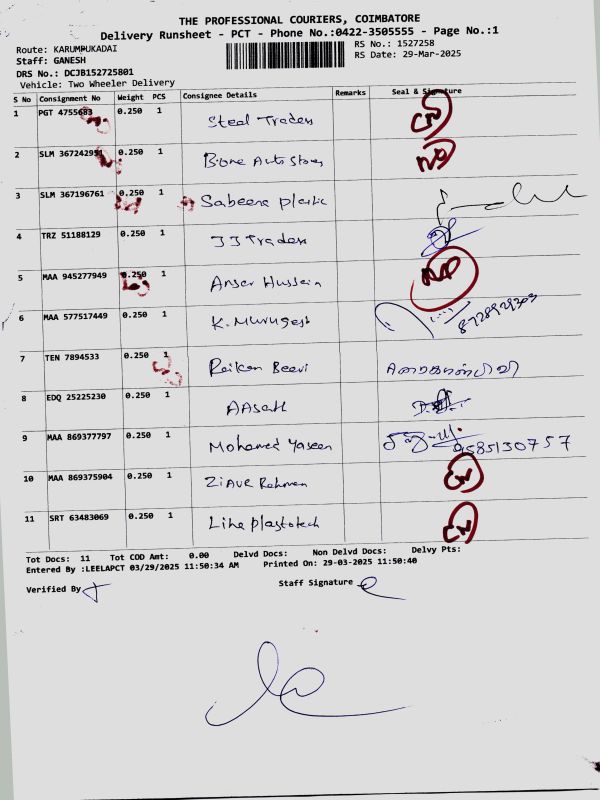 THE PROFESSIONAL COURIERS, COIMBATORE
Delivery Runsheet - PCT - Phone No.:0422-3505555 - Page No.:1
Route: KARUMBUKADAI RS No.: 1527258
Staff: GANESH RS Date: 29-Mar-2025
DRS No.: DCJB152725801
Vehicle: Two Wheeler Delivery
S No Consignment No Weight PCS Consignee Details Remarks Seal & Signature
1 PGT 4755683 0.250 1 Steel Traders
2 SLM 0.250 1 Stores
3 SLM 367196761 0.250 1 Sabeena plastic
4 TRZ 51188129 0.250 1 JJ Traders
5 MAA 945277949 0.250 1 Anser Hussein
6 MAA 577517449 0.250 1 K. Murugesh
7 TEN 7894533 0.250 1 Raikon Beevi
8 EDQ 25225230 0.250 1 AAsath
9 MAA 869377797 0.250 1 Mohamed Yaseen 9585130757
10 MAA 869375904 0.250 1 Ziaur Rehman
11 SRT 63483069 0.250 1 Liha plastotech
Tot Docs: 11 Tot COD Amt: 0.00 Delvd Docs: Non Delvd Docs: Delvy Pts:
Entered By :LEELAPCT 03/29/2025 11:50:34 AM Printed On: 29-03-2025 11:50:40
Verified By Staff Signature